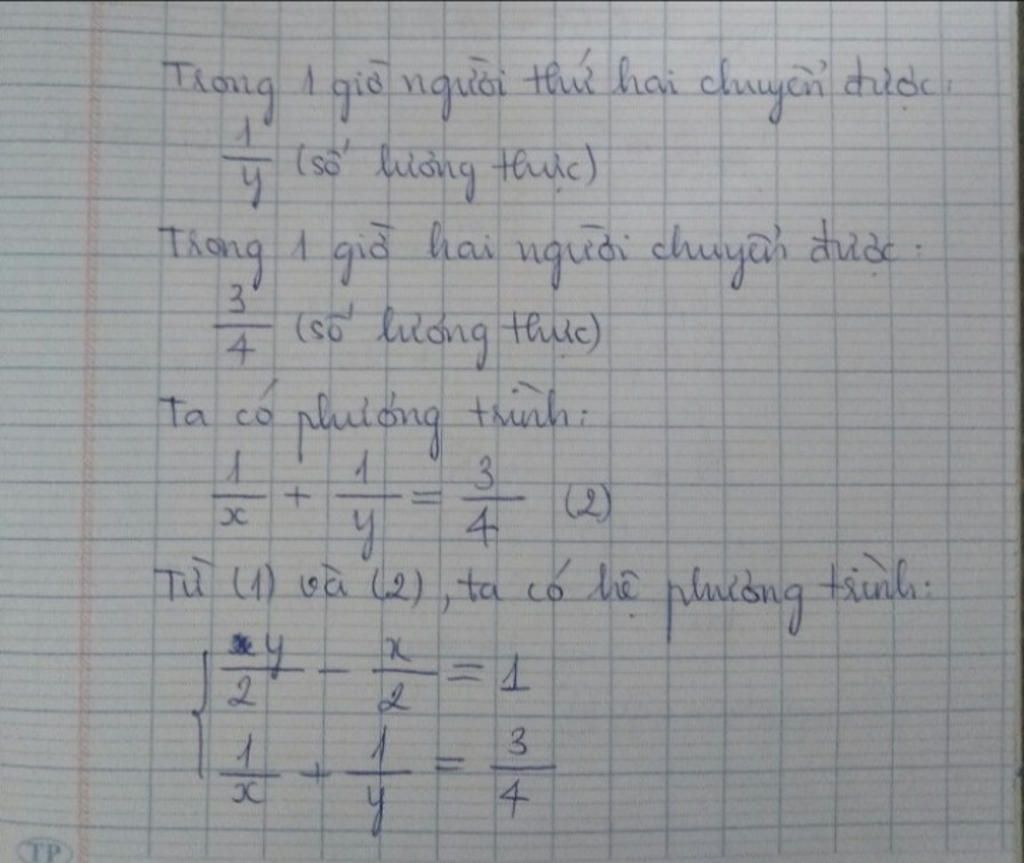 Trong 1 giờ người thứ hai chuyển được:
1/y (số lương thực)
Trong 1 giờ hai người chuyển được:
3/4 (số lương thực)
Ta có phương trình:
1/x + 1/y = 3/4 (2)
Từ (1) và (2), ta có hệ phương trình:
{ y/2 - x/2 = 1
1/x + 1/y = 3/4
TP